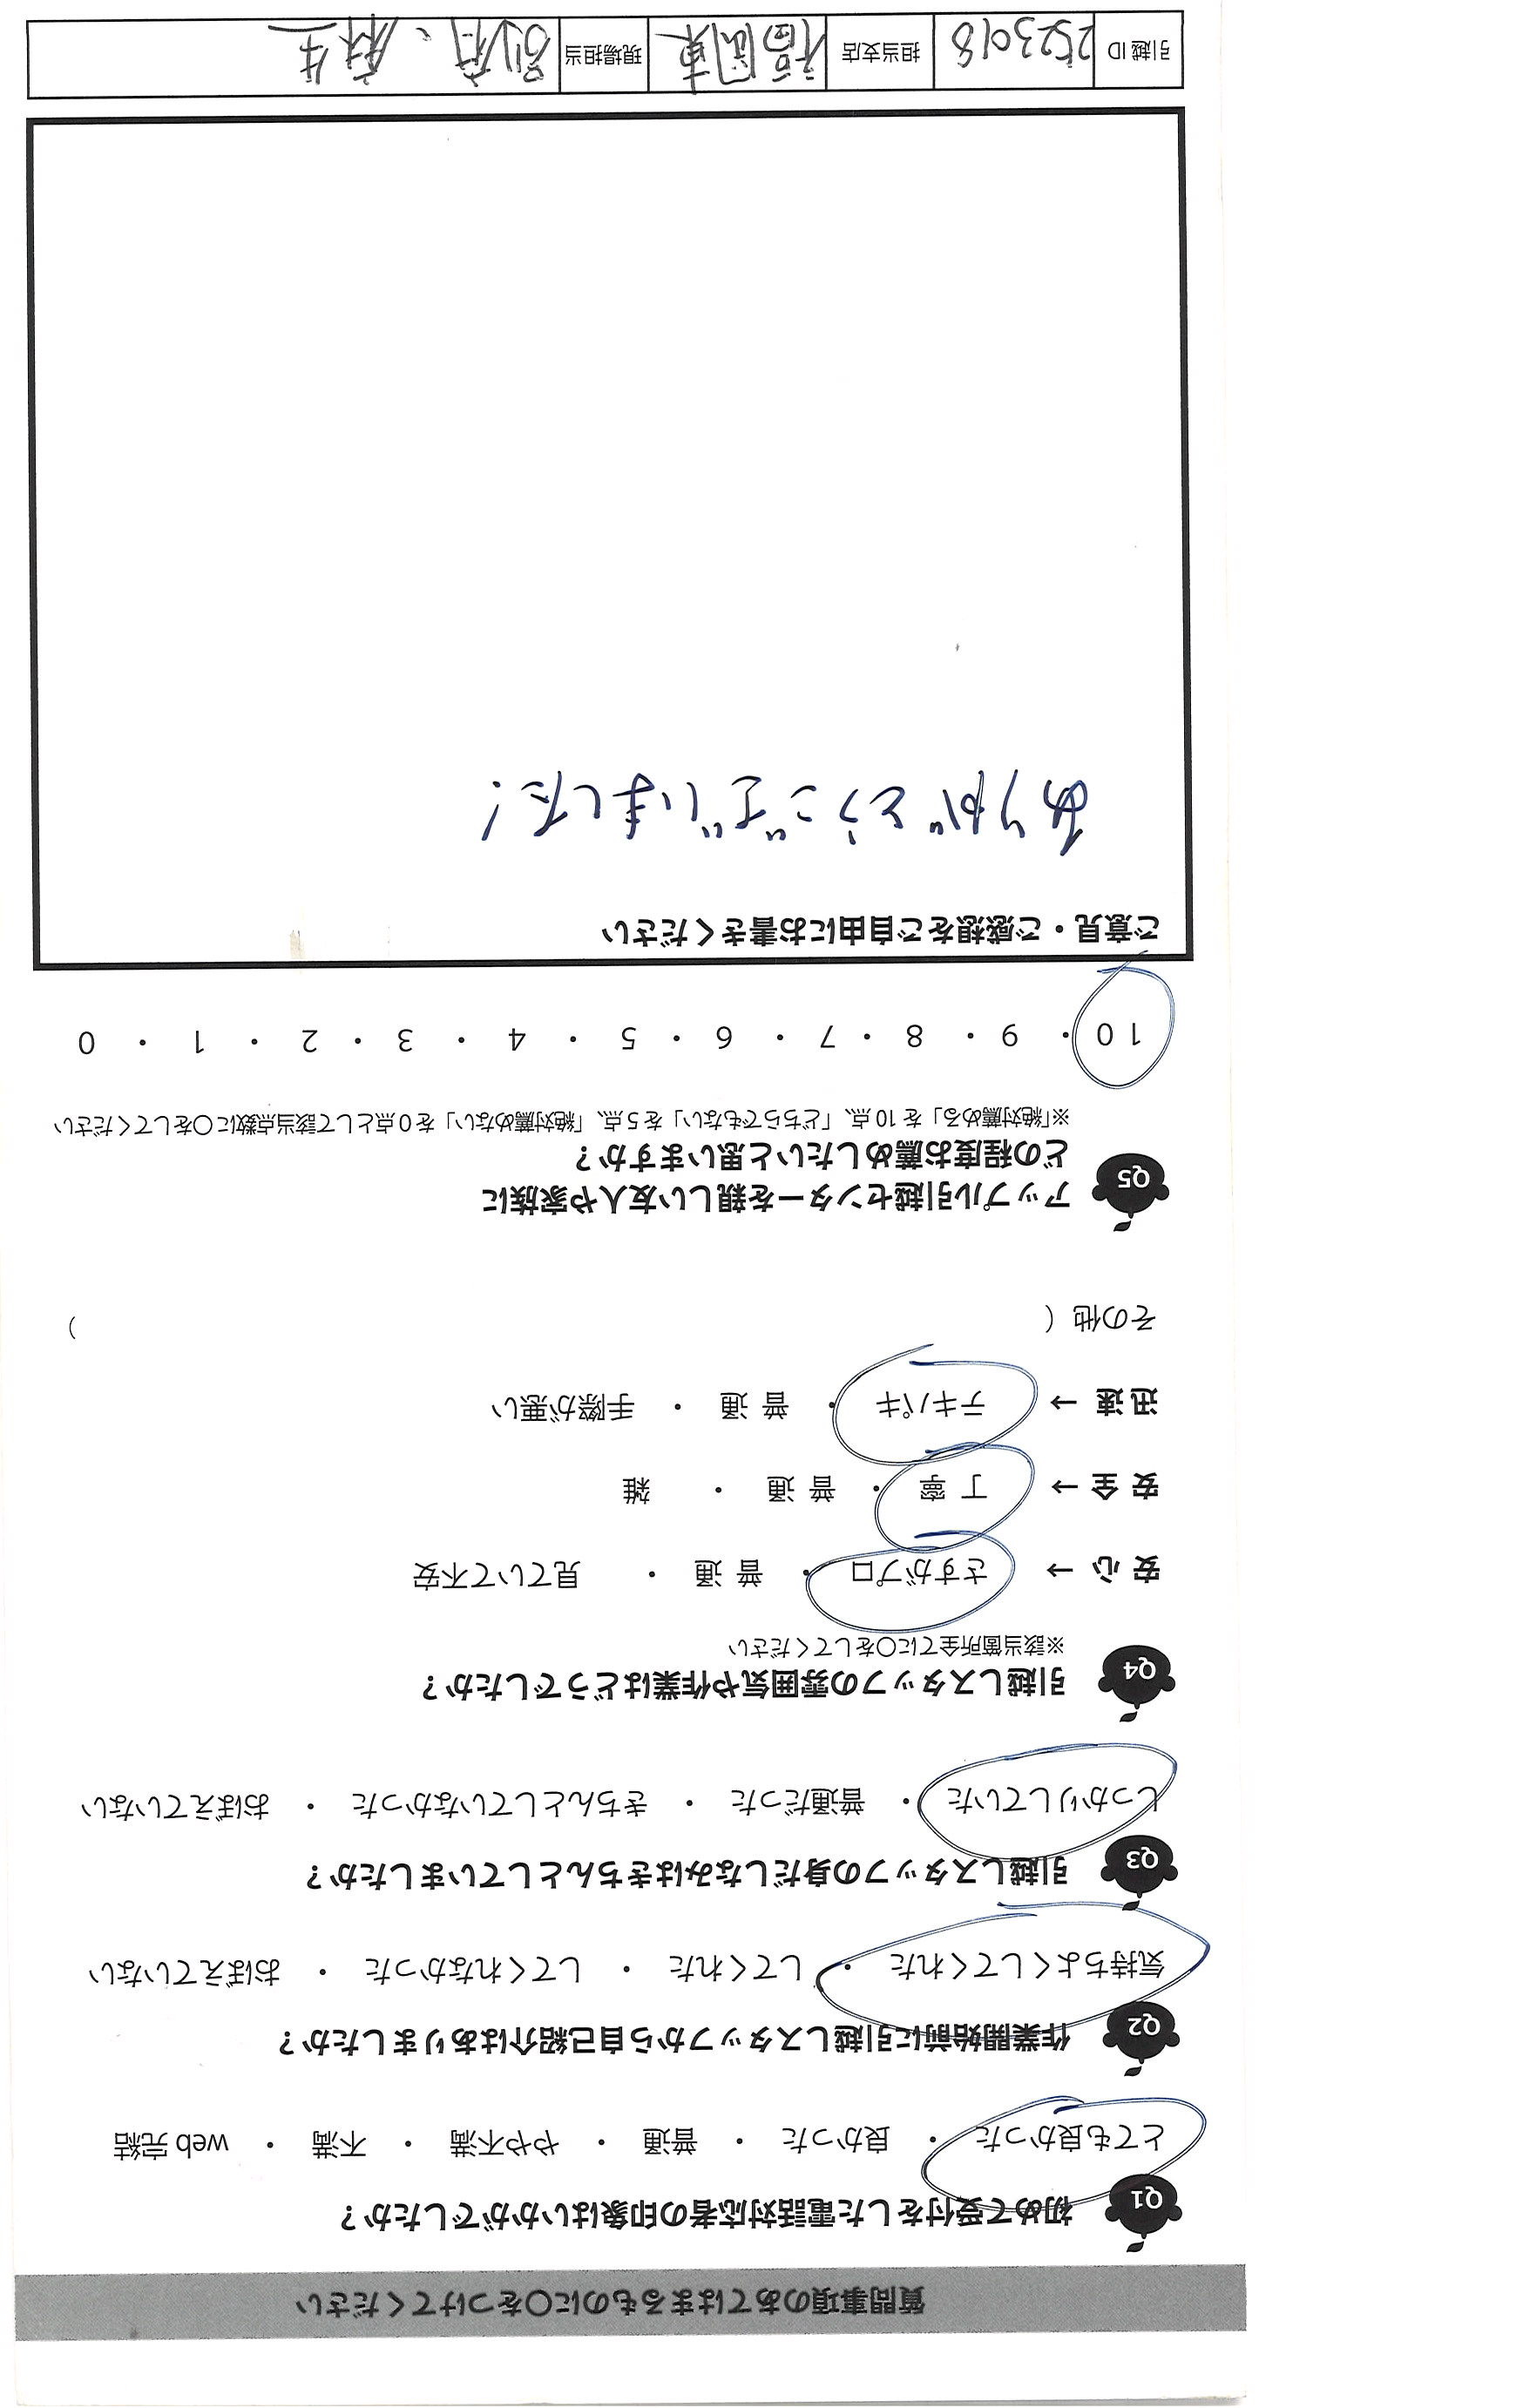 質問事項のあてはまるものに○をつけてください
Q1 初めて受付をした電話対応者の印象はいかがでしたか？
とても良かった ・ 良かった ・ 普通 ・ やや不満 ・ 不満 ・ web 完結
Q2 作業開始前に引越しスタッフから自己紹介はありましたか？
気持ちよくしてくれた ・ してくれた ・ してくれなかった ・ おぼえていない
Q3 引越しスタッフの身だしなみはきちんとしていましたか？
しっかりしていた ・ 普通だった ・ きちんとしていなかった ・ おぼえていない
Q4 引越しスタッフの雰囲気や作業はどうでしたか？
※該当箇所全てに○をしてください
安 心 → さすがプロ ・ 普 通 ・ 見ていて不安
安 全 → 丁 寧 ・ 普 通 ・ 雑
迅 速 → テキパキ ・ 普 通 ・ 手際が悪い
その他（ ）
Q5 アップル引越センターを親しい友人や家族に
どの程度お薦めしたいと思いますか？
※「絶対薦める」を 10 点、「どちらでもない」を 5 点、「絶対薦めない」を 0 点として該当点数に○をしてください
10 ・ 9 ・ 8 ・ 7 ・ 6 ・ 5 ・ 4 ・ 3 ・ 2 ・ 1 ・ 0
ご意見・ご感想をご自由にお書きください
ありがとうございました！
引越 ID 2523018 担当支店 福岡東 現場担当 別府、麻生